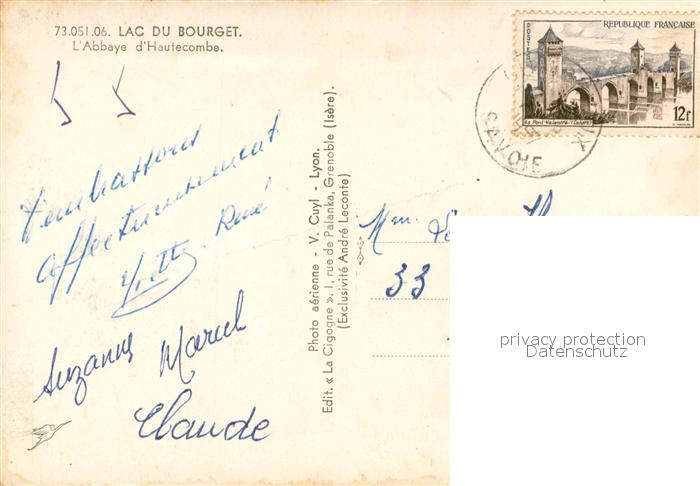 73.051.06. LAC DU BOURGET.
L'Abbaye d'Hautecombe.
affectueusement
Yvette René
Suzanne Marcel
Claude
Photo aérienne - V. Cuyl - Lyon.
Edit. « La Cigogne ». 1, rue de Palanka, Grenoble (Isère).
(Exclusivité André Leconte)
POSTES
REPUBLIQUE FRANÇAISE
Le Pont Valentré (Cahors)
12f
SAVOIE
33
privacy protection
Datenschutz